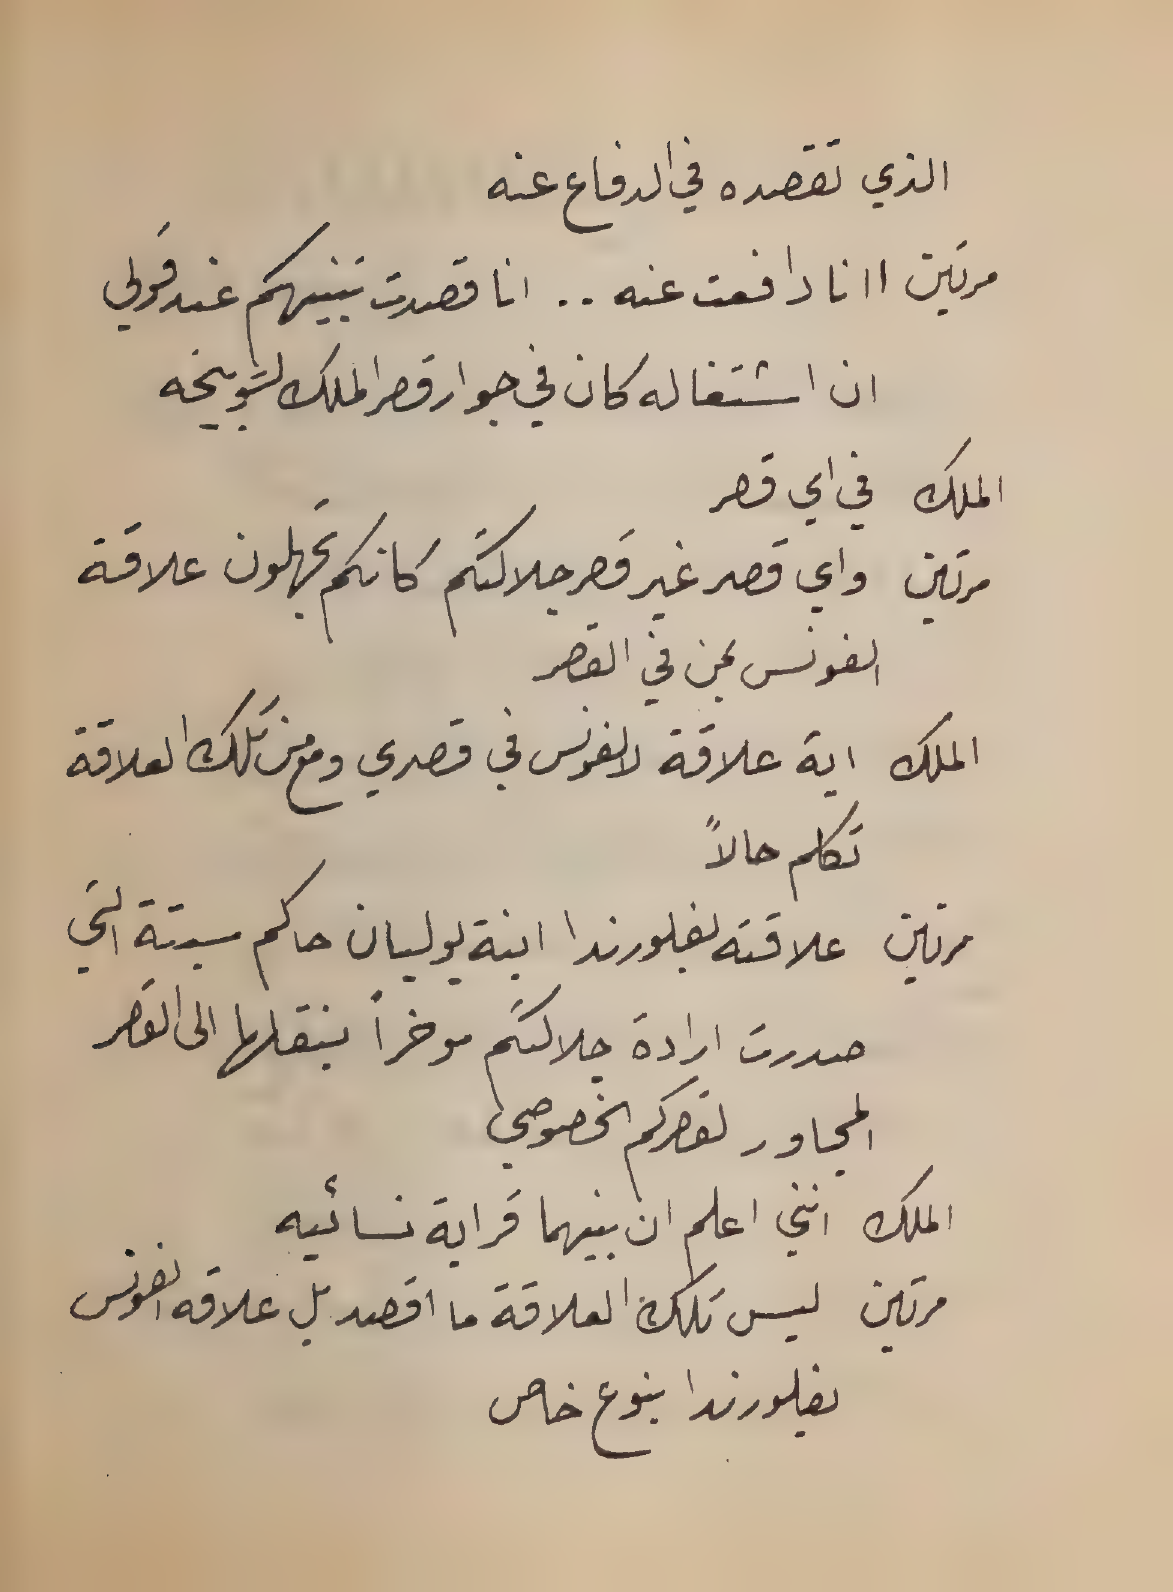 الذي تقصده في الدفاع عنه
مرتين اانا دافعت عنه .. انا قصدت تنبيهكم عند قولي
ان اشتغاله كان في جوار قصر الملك لتوبيخه
الملك في اي قصر
مرتين واي قصر غير قصر جلالتكم كانكم تجهلون علاقة
الفونس بمن في القصر
الملك اية علاقة لالفونس في قصري ومع من تلك العلاقة
تكلم حالاً
مرتين علاقته بفلورندا ابنة يوليان حاكم سبتة التي
صدرت ارادة جلالتكم موخراً بنقلها الى القصر
المجاور لقصركم الخصوصي
الملك انني اعلم ان بينهما قرابة نسائيه
مرتين ليس تلك العلاقة ما اقصد بل علاقه الفونس
بفلورندا بنوع خاص